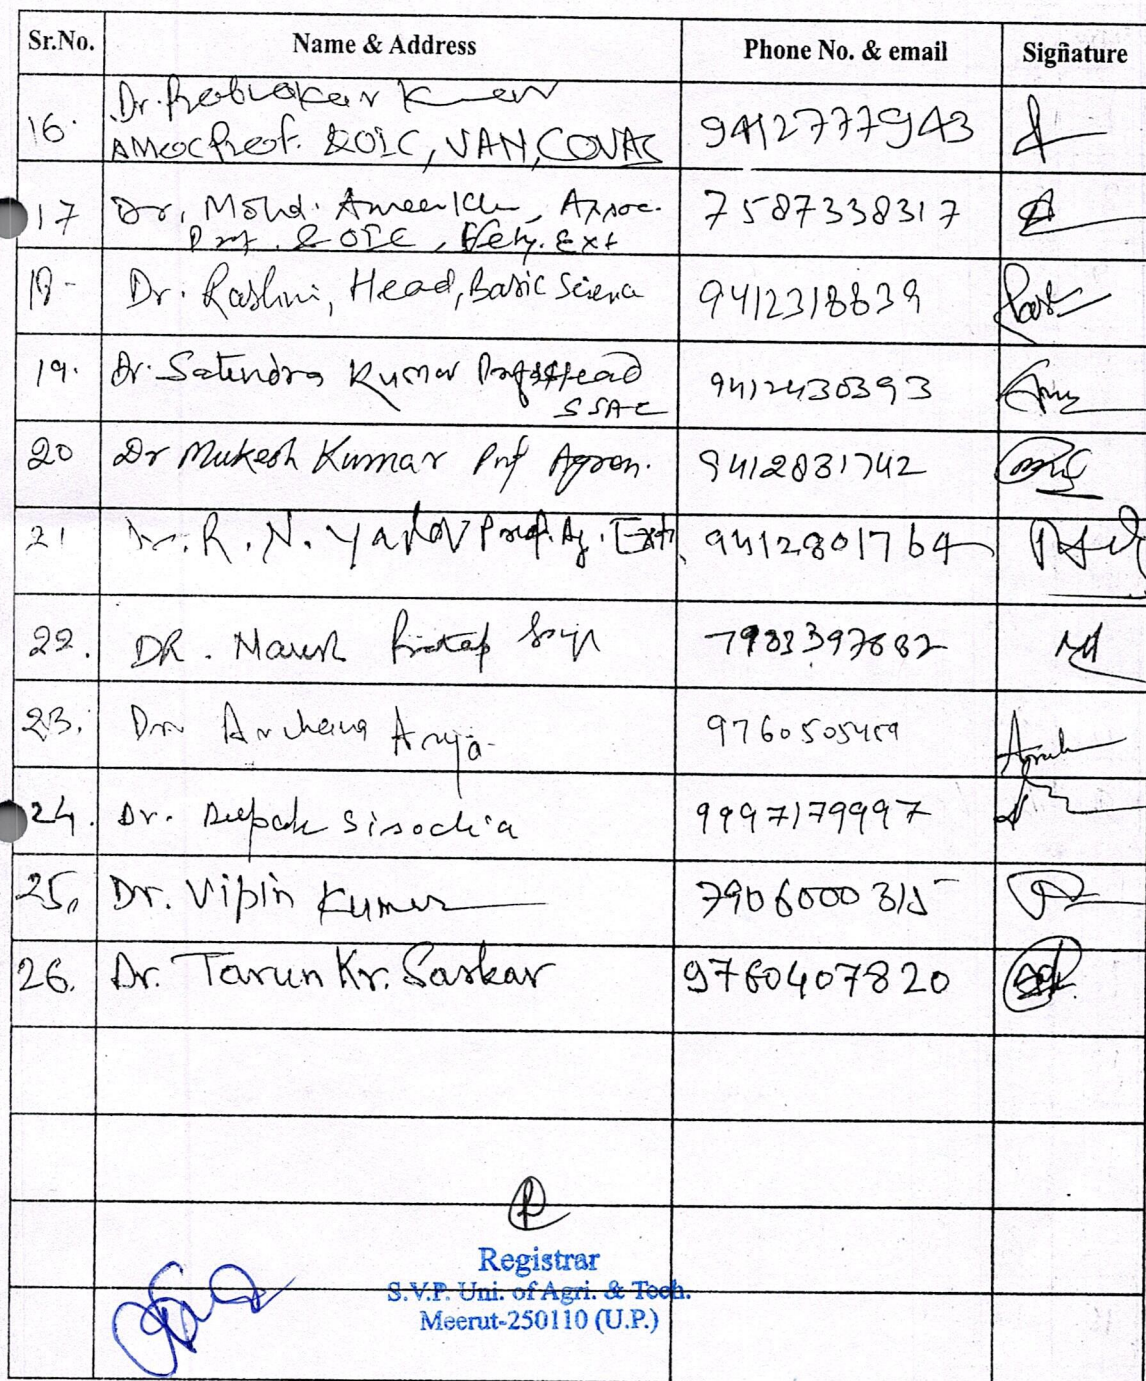 Sr.No. Name & Address Phone No. & email Signature
16. Dr. Kumar 9412777943
Assoc Prof. & OIC, VAN, COVAS
17 Dr. Mohd. Ameer Assoc. 7587338317
Prof. & OIC, Vety. Ext
18- Dr. Rashmi, Head, Basic Science 9412318839
19. Dr. Satendra Kumar Prof & Head 9412430393
SSAC
20 Dr Mukesh Kumar Prof Agron. 9412831742
21 Dr. R. N. Yadav Prof. Ag. Extn. 9412801764
22. DR. Pratap
23. Dr Archana Arya
24. Dr. Deepak Sisodia 9997179997
25. Dr. Vipin Kumar 7906000315
26. Dr. Tarun Kr. Sarkar 9760407820
Registrar
S.V.P. Uni. of Agri. & Tech.
Meerut-250110 (U.P.)